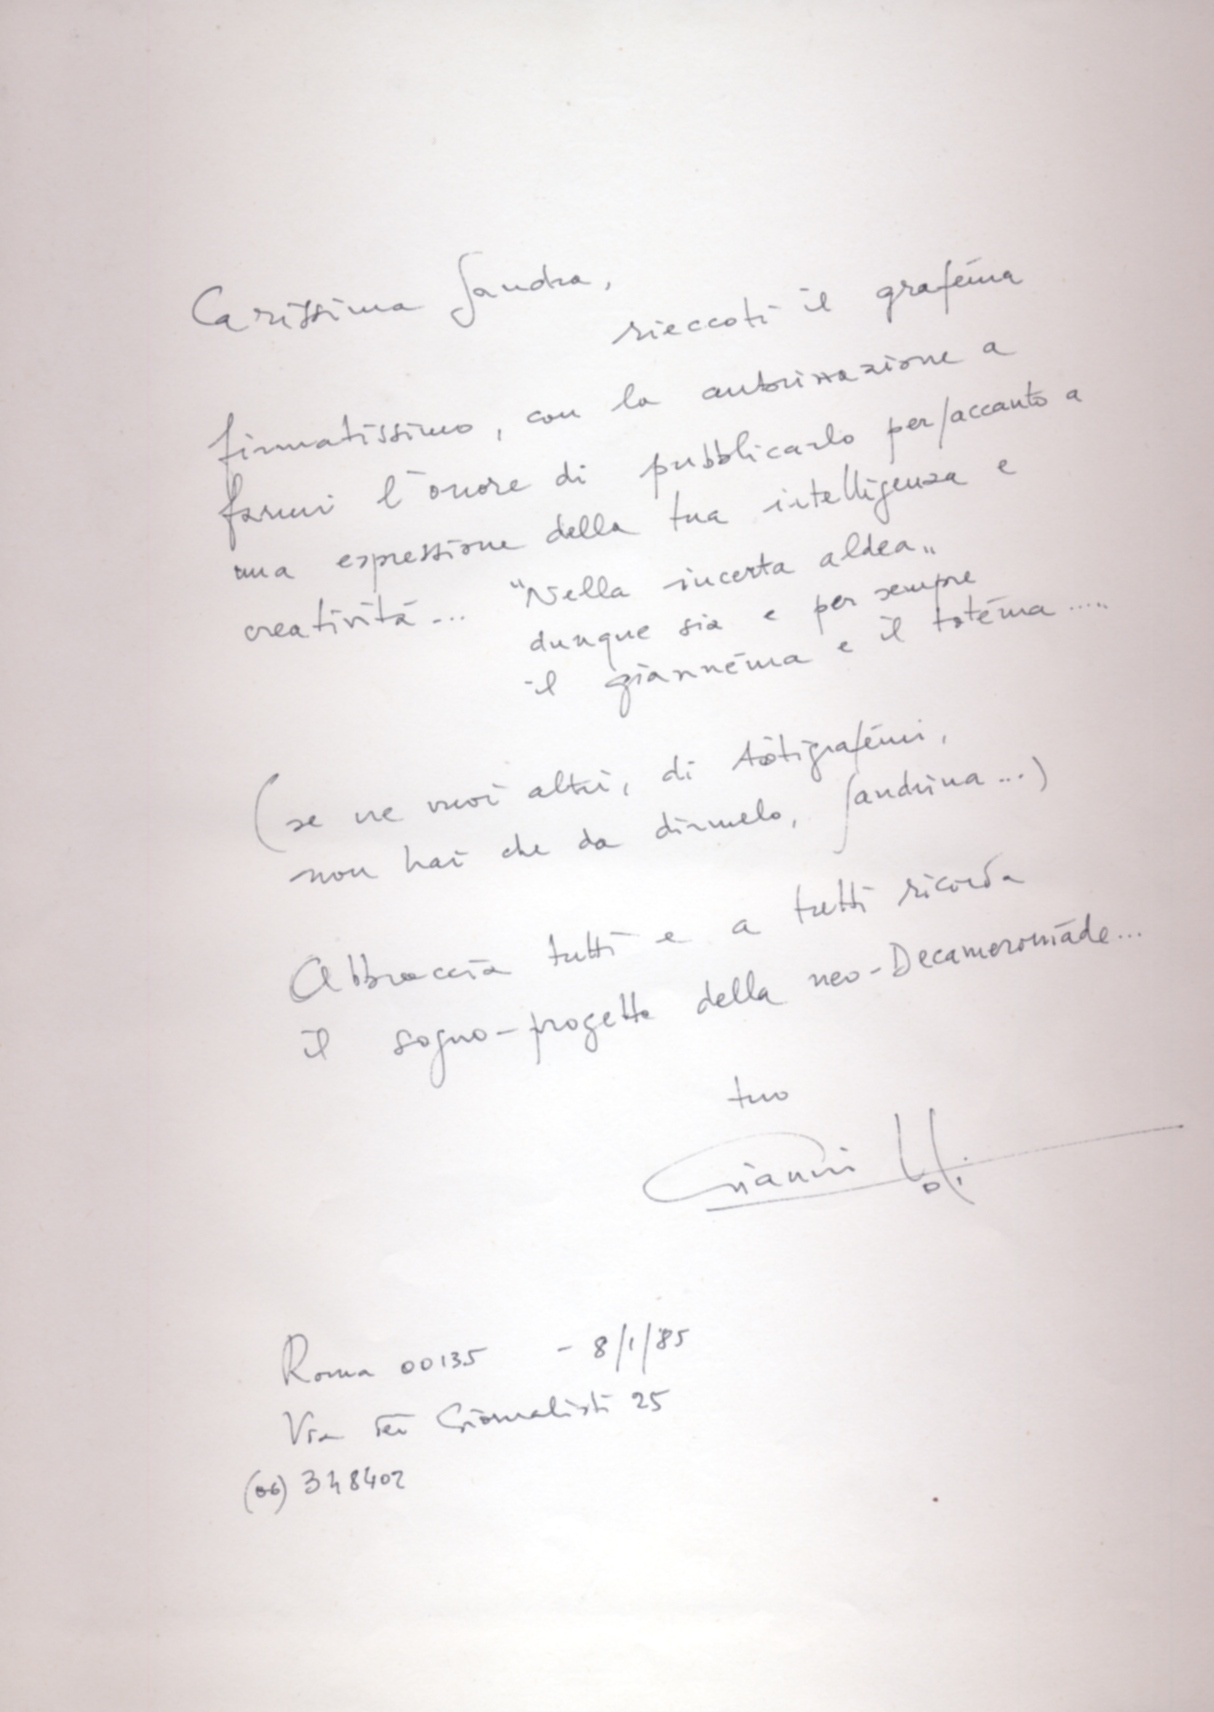 Carissima Sandra,
rieccoti il grafēma
firmatissimo, con la autorizzazione a
farmi l'onore di pubblicarlo per/accanto a
una espressione della tua intelligenza e
creatività... "Nella incerta aldea"
dunque sia e per sempre
il giannēma e il totēma .....
(se ne vuoi altri, di
non hai che da dirmelo, Sandrina...)
Abbraccia tutti e a tutti ricorda
il sogno-progetto della neo-Decameroniāde...
tuo
Gianni
Roma 00135 - 8/1/85
Via dei Giornalisti 25
(06) 348402